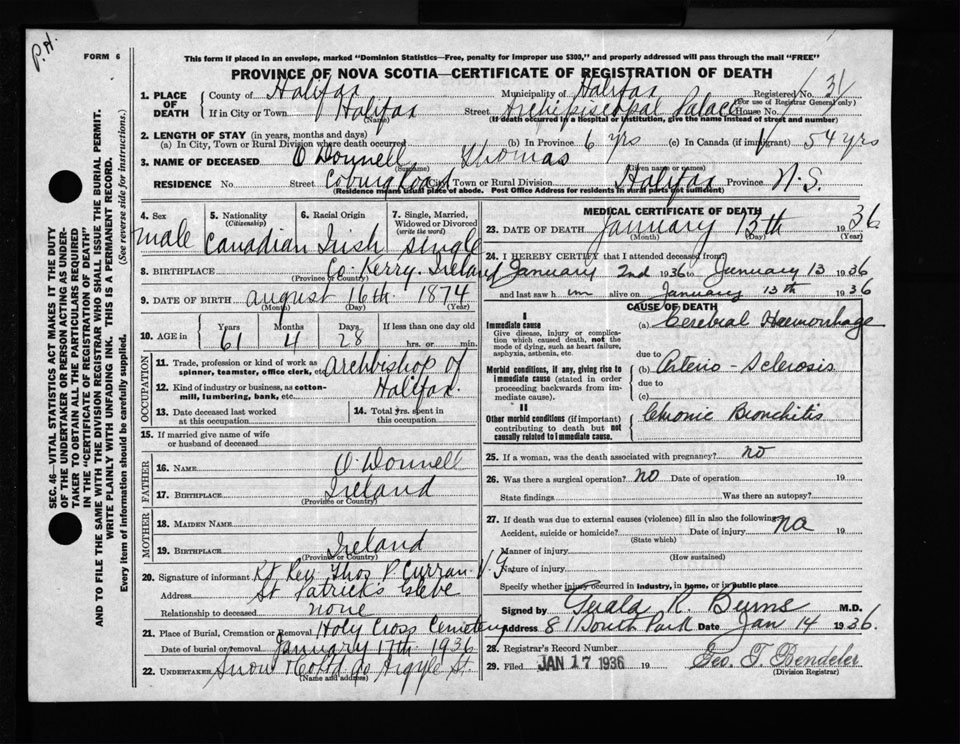 P.H.
FORM 6
This form if placed in an envelope, marked "Dominion Statistics—Free, penalty for improper use $300," and properly addressed will pass through the mail "FREE"
PROVINCE OF NOVA SCOTIA—CERTIFICATE OF REGISTRATION OF DEATH
1. PLACE OF DEATH County of Halifax Municipality of Halifax Registered No. 31
(For use of Registrar General only)
If in City or Town Halifax Street Archiepiscopal Palace House No.
(Name) (If death occurred in a hospital or institution, give the name instead of street and number)
2. LENGTH OF STAY (in years, months and days)
(a) In City, Town or Rural Division where death occurred (b) In Province 6 yrs (c) In Canada (if immigrant) 54 yrs
3. NAME OF DECEASED O'Donnell Thomas
(Surname) (Given name or names)
RESIDENCE No. Street Coburg Road City, Town or Rural Division Halifax Province N.S.
(Residence means usual place of abode. Post Office Address for residents in rural parts not sufficient)
4. Sex male
5. Nationality (Citizenship) Canadian
6. Racial Origin Irish
7. Single, Married, Widowed or Divorced (write the word) single
8. BIRTHPLACE Co. Kerry, Ireland
(Province or Country)
9. DATE OF BIRTH August 16th 1874
(Month) (Day) (Year)
10. AGE in Years 61 Months 4 Days 28 If less than one day old
hrs. or min.
OCCUPATION
11. Trade, profession or kind of work as spinner, teamster, office clerk, etc. Archbishop of
12. Kind of industry or business, as cotton-mill, lumbering, bank, etc. Halifax.
13. Date deceased last worked at this occupation
14. Total yrs. spent in this occupation
15. If married give name of wife or husband of deceased
FATHER
16. NAME O'Donnell
17. BIRTHPLACE Ireland
(Province or Country)
MOTHER
18. MAIDEN NAME
19. BIRTHPLACE Ireland
(Province or Country)
20. Signature of informant Rt Rev. Thos P. Curran V.G.
Address St Patrick's Glebe
Relationship to deceased none
21. Place of Burial, Cremation or Removal Holy Cross Cemetery
Date of burial or removal January 17th 1936
22. UNDERTAKER Snow & Co Ltd 90 Argyle St.
(Name and address)
MEDICAL CERTIFICATE OF DEATH
23. DATE OF DEATH January 13th 1936
(Month) (Day) (Year)
24. I HEREBY CERTIFY that I attended deceased from:
January 2nd 1936 to January 13 1936
and last saw h im alive on January 13th 1936
CAUSE OF DEATH
I
Immediate cause
Give disease, injury or complication which caused death, not the mode of dying, such as heart failure, asphyxia, asthenia, etc.
(a) Cerebral Haemorrhage
due to
Morbid conditions, if any, giving rise to immediate cause (stated in order proceeding backwards from immediate cause).
(b) Arterio-Sclerosis
due to
(c)
II
Other morbid conditions (if important) contributing to death but not causally related to immediate cause.
Chronic Bronchitis
25. If a woman, was the death associated with pregnancy? no
26. Was there a surgical operation? no Date of operation 19
State findings Was there an autopsy?
27. If death was due to external causes (violence) fill in also the following:
Accident, suicide or homicide? Date of injury no 19
(State which)
Manner of injury
(How sustained)
Nature of injury
Specify whether injury occurred in industry, in home, or in public place
Signed by Gerald R. Burns M.D.
Address 81 South Park Date Jan 14 1936.
28. Registrar's Record Number
29. Filed JAN 17 1936 19 Geo. T. Bendeler
(Division Registrar)
SEC. 46—VITAL STATISTICS ACT MAKES IT THE DUTY
OF THE UNDERTAKER OR PERSON ACTING AS UNDERTAKER TO OBTAIN ALL THE PARTICULARS REQUIRED
IN THE "CERTIFICATE OF REGISTRATION OF DEATH"
AND TO FILE THE SAME WITH THE DIVISION REGISTRAR WHO SHALL ISSUE THE BURIAL PERMIT.
WRITE PLAINLY WITH UNFADING INK. THIS IS A PERMANENT RECORD.
Every item of information should be carefully supplied. (See reverse side for instructions.)